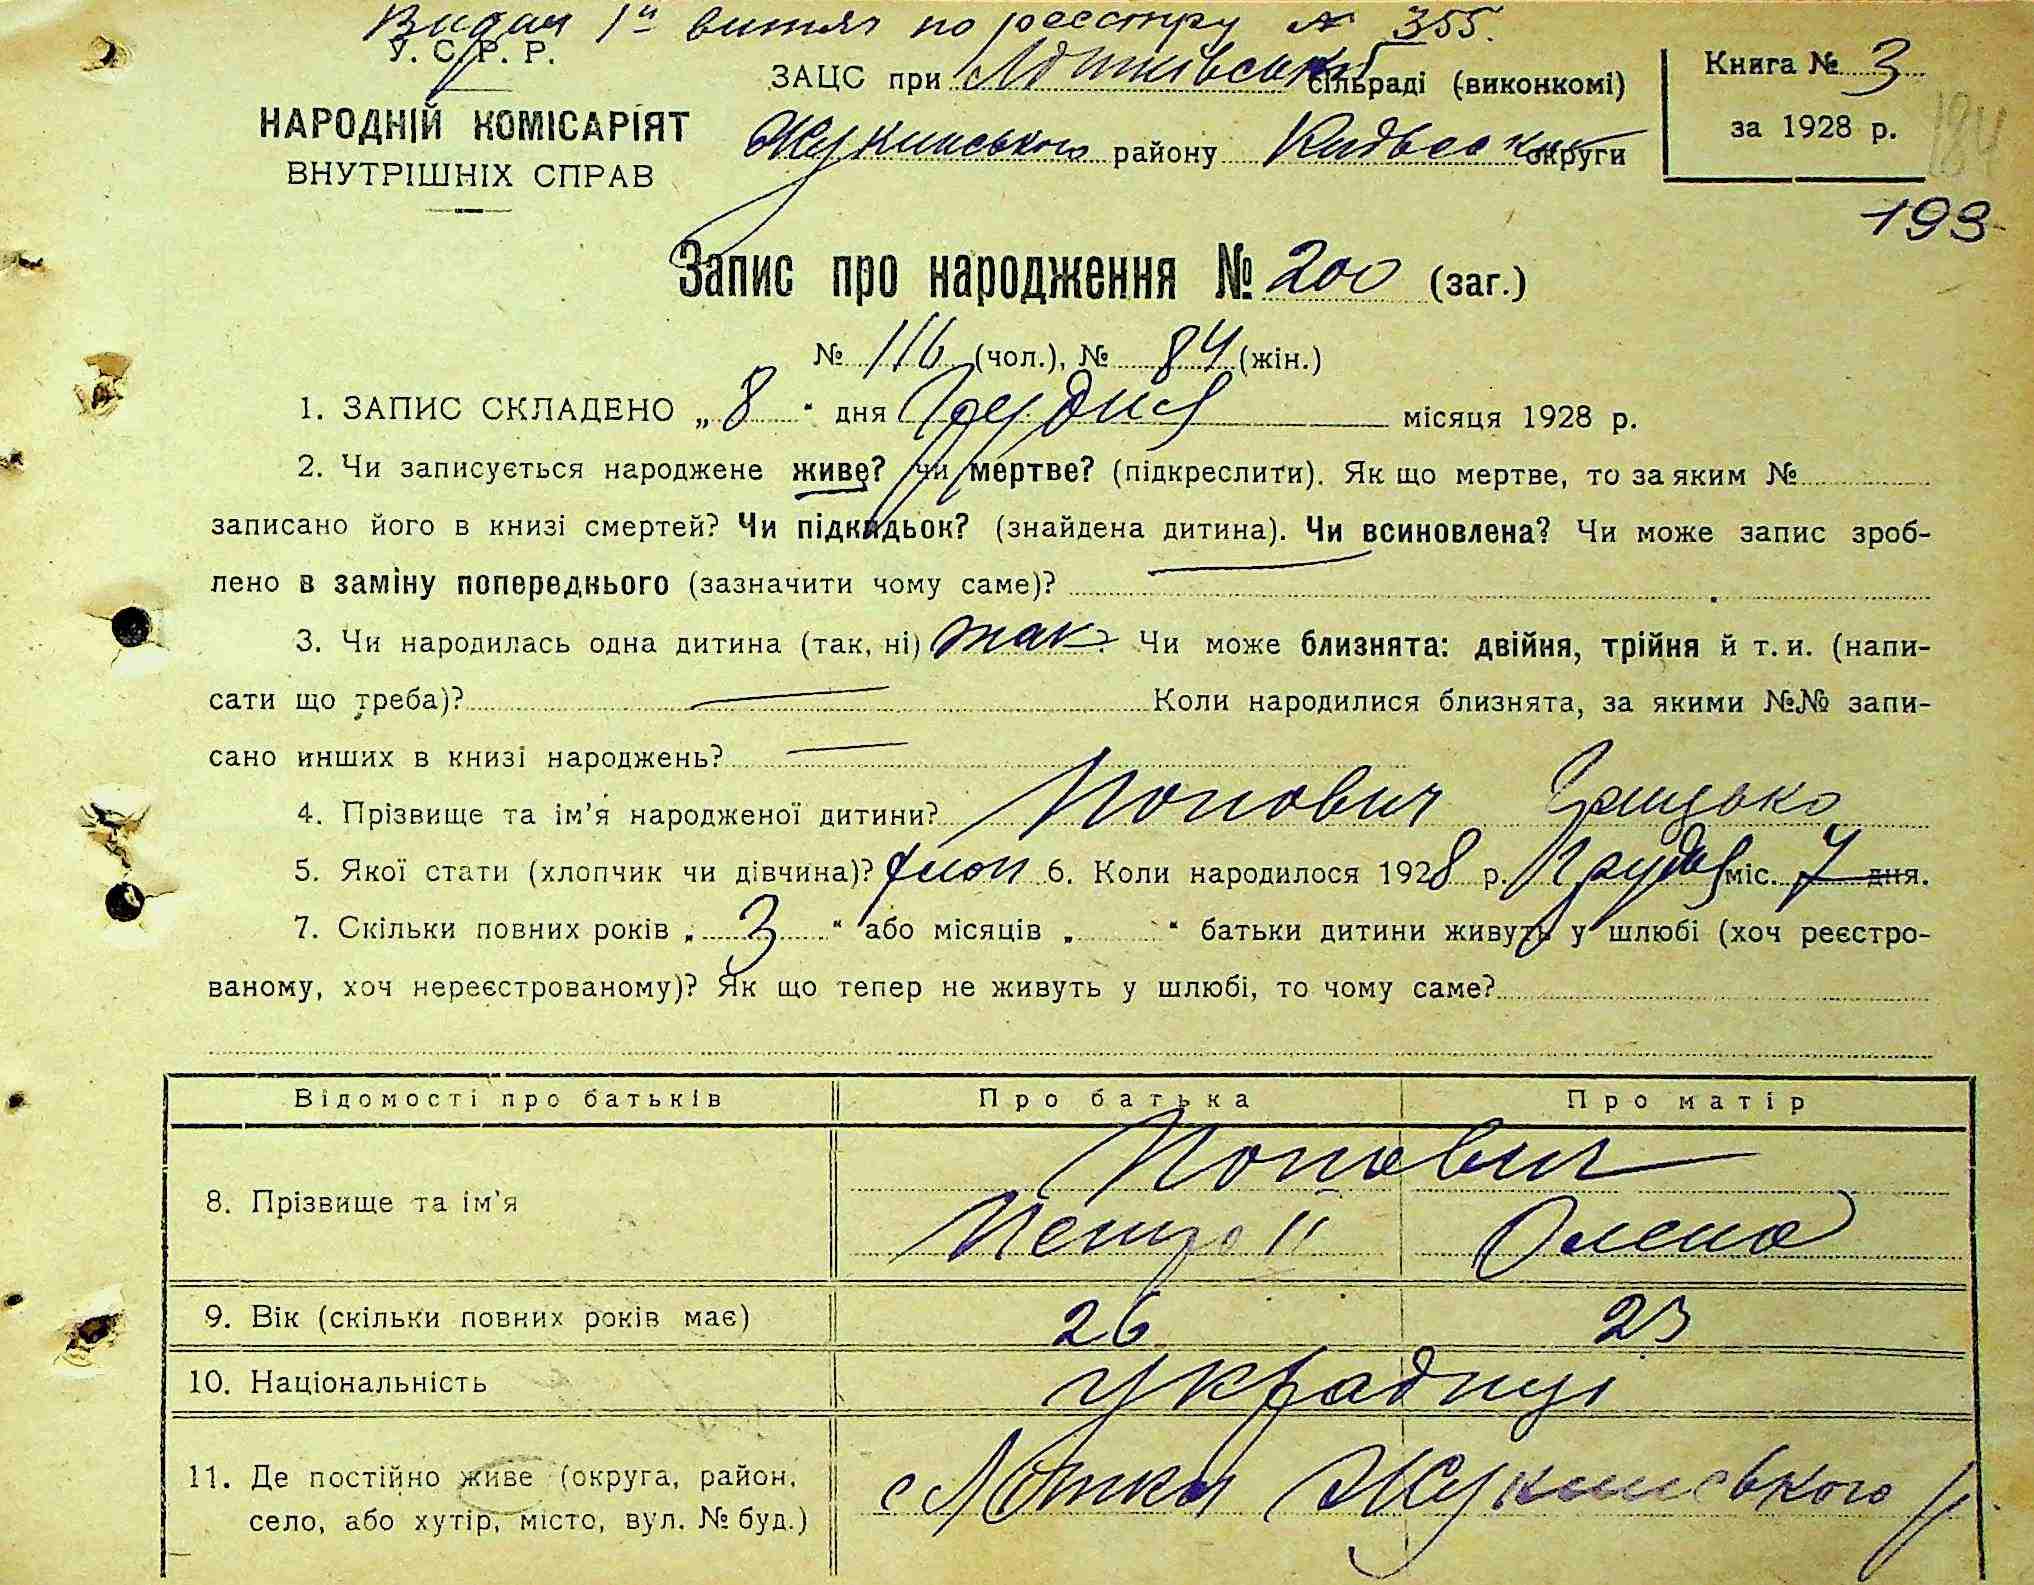 Видан 1й витяг по реєстру № 355.
У. С. Р. Р.
НАРОДНІЙ КОМІСАРІЯТ
ВНУТРІШНІХ СПРАВ
ЗАЦС при Лотківській сільраді (виконкомі)
Жукинського району Київської округи
Книга № 3
за 1928 р.
184
193
Запис про народження № 200 (заг.)
№ 116 (чол.), № 84 (жін.)
1. ЗАПИС СКЛАДЕНО „ 8 “ дня Грудня місяця 1928 р.
2. Чи записується народжене живе? чи мертве? (підкреслити). Як що мертве, то за яким №
записано його в книзі смертей? Чи підкидьок? (знайдена дитина). Чи всиновлена? Чи може запис зроб-
лено в заміну попереднього (зазначити чому саме)?
3. Чи народилась одна дитина (так, ні) так Чи може близнята: двійня, трійня й т. и. (напи-
сати що треба)? — Коли народилися близнята, за якими №№ запи-
сано инших в книзі народжень? —
4. Прізвище та ім’я народженої дитини? Попович Грицько
5. Якої стати (хлопчик чи дівчина)? хлоп 6. Коли народилося 1928 р. Грудня міс. 7 дня.
7. Скільки повних років „ 3 “ або місяців „ “ батьки дитини живуть у шлюбі (хоч реєстро-
ваному, хоч нереєстрованому)? Як що тепер не живуть у шлюбі, то чому саме?
Відомості про батьків Про батька Про матір
Попович
8. Прізвище та ім’я Петро ІІ Олена
9. Вік (скільки повних років має) 26 23
10. Національність українці
11. Де постійно живе (округа, район,
село, або хутір, місто, вул. № буд.) с Лотки Жукинського р